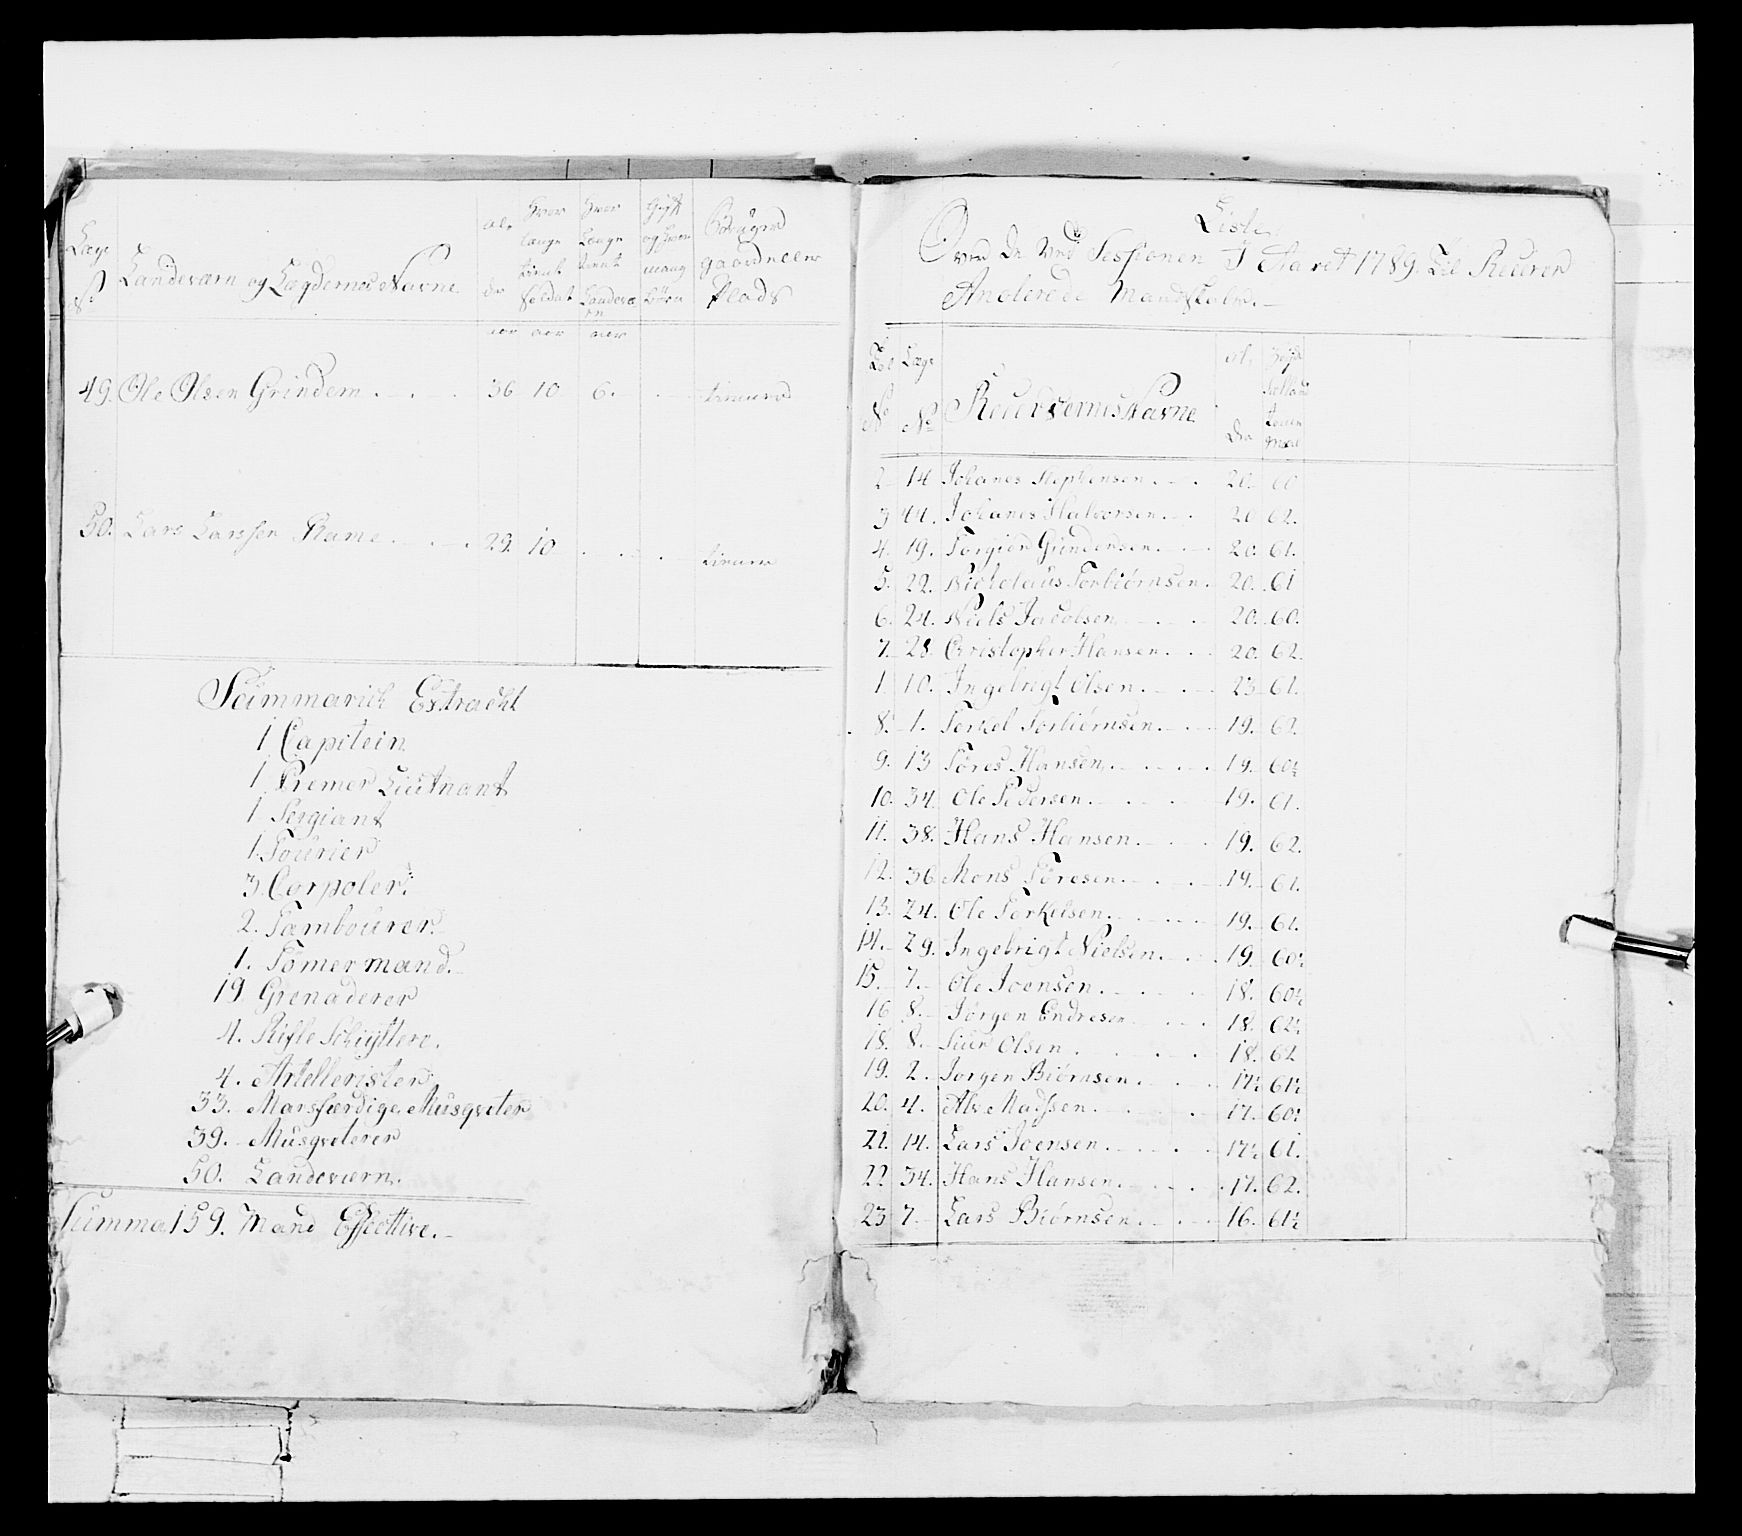 Læg
No
Landeværn og Lægdernes Navne
Al-
der
aar
Hvor
længe
tient
Soldat
aar
Hvor
Længe
tient
Landevæ
rn
aar
Gift
og hvor
mang
Børn
Bruger
gaard eller
Plads
49. Ole Olsen Grindem . - . - . 36 10 6. . - tienner
50. Lars Larssen Rame . - . - . 29. 10 . - . - . tienner
Summarisk Extracht
1 Capitein
1 Premer Lieutnant
1 Sergiant
1. Fourier
3. Corpoler:
2. Tambourer.
1. Tømermand.
19 Grenaderer
4. Rifle Schÿttere.
4. Artellerister
33. Marsfærdige Musqveter
39. Musqveterer
50. Landeværn.
Summa 159. Mand Effective. -
Liste
Over De Ved Sessionen I Aaret 1789. Til Reserver
Anoterede Mandskaber. -
No
Læg
No
Reservernes Navne
Al-
der
Høyde
Tom
2 14 Johanes Stephensen . - . 20. 60
3 44. Johanes Halvorsen . - . 20 62.
4. 19. Torgier Gundersen . - . 20. 61.
5. 22. Nicholaus Torbiørnsen . 20. 61
6. 24. Niels Jacobsen . - . 20. 60.
7. 28 Christopher Hansen . . 20. 62.
1. 10. Ingebregt Olsen . - . 23. 61.
8. 1. Terkel Torbiørnsen . - 19. 62.
9. 13 Tøres Hansen . - . 19. 60½
10. 34. Ole Pedersen . - . 19. 61.
11. 38. Hans Hansen . - . 19. 62.
12. 36 Mons Tøresen . - . 19. 61.
13. 24. Ole Terkelsen . - . 19. 61.
14. 29. Ingebrigt Nielsen . - . 19. 60½
15. 7. Ole Joensen . - . 18. 60½
16 8. Jørgen Endresen . - . 18. 62½
18. 8. Siur Olsen . - . 18. 62
19. 2. Jørgen Biørnsen . - . 17½ 61½
20. 4. Alv Madssen . - . 17. 60½
21. 14. Lars Joensen . - . 17½ 61.
22 34. Hans Hansen . - . 17. 62.
23 7. Lars Biørnsen . - . 16. 61½